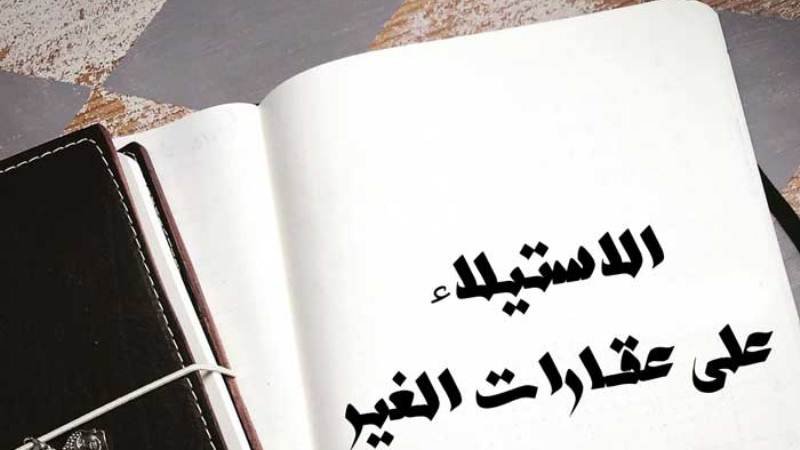 الاستيلاء
على عقارات الغير